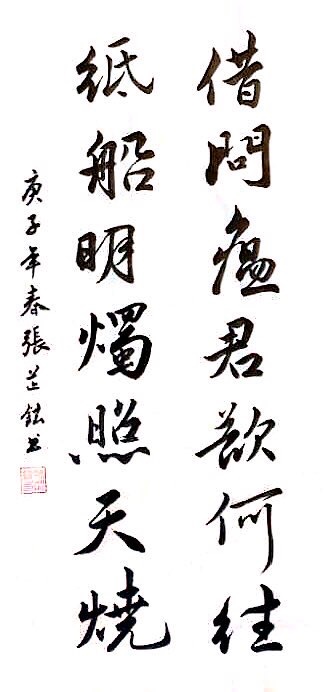 借問瘟君欲何往
紙船明燭照天燒
庚子年春張芷鋐書